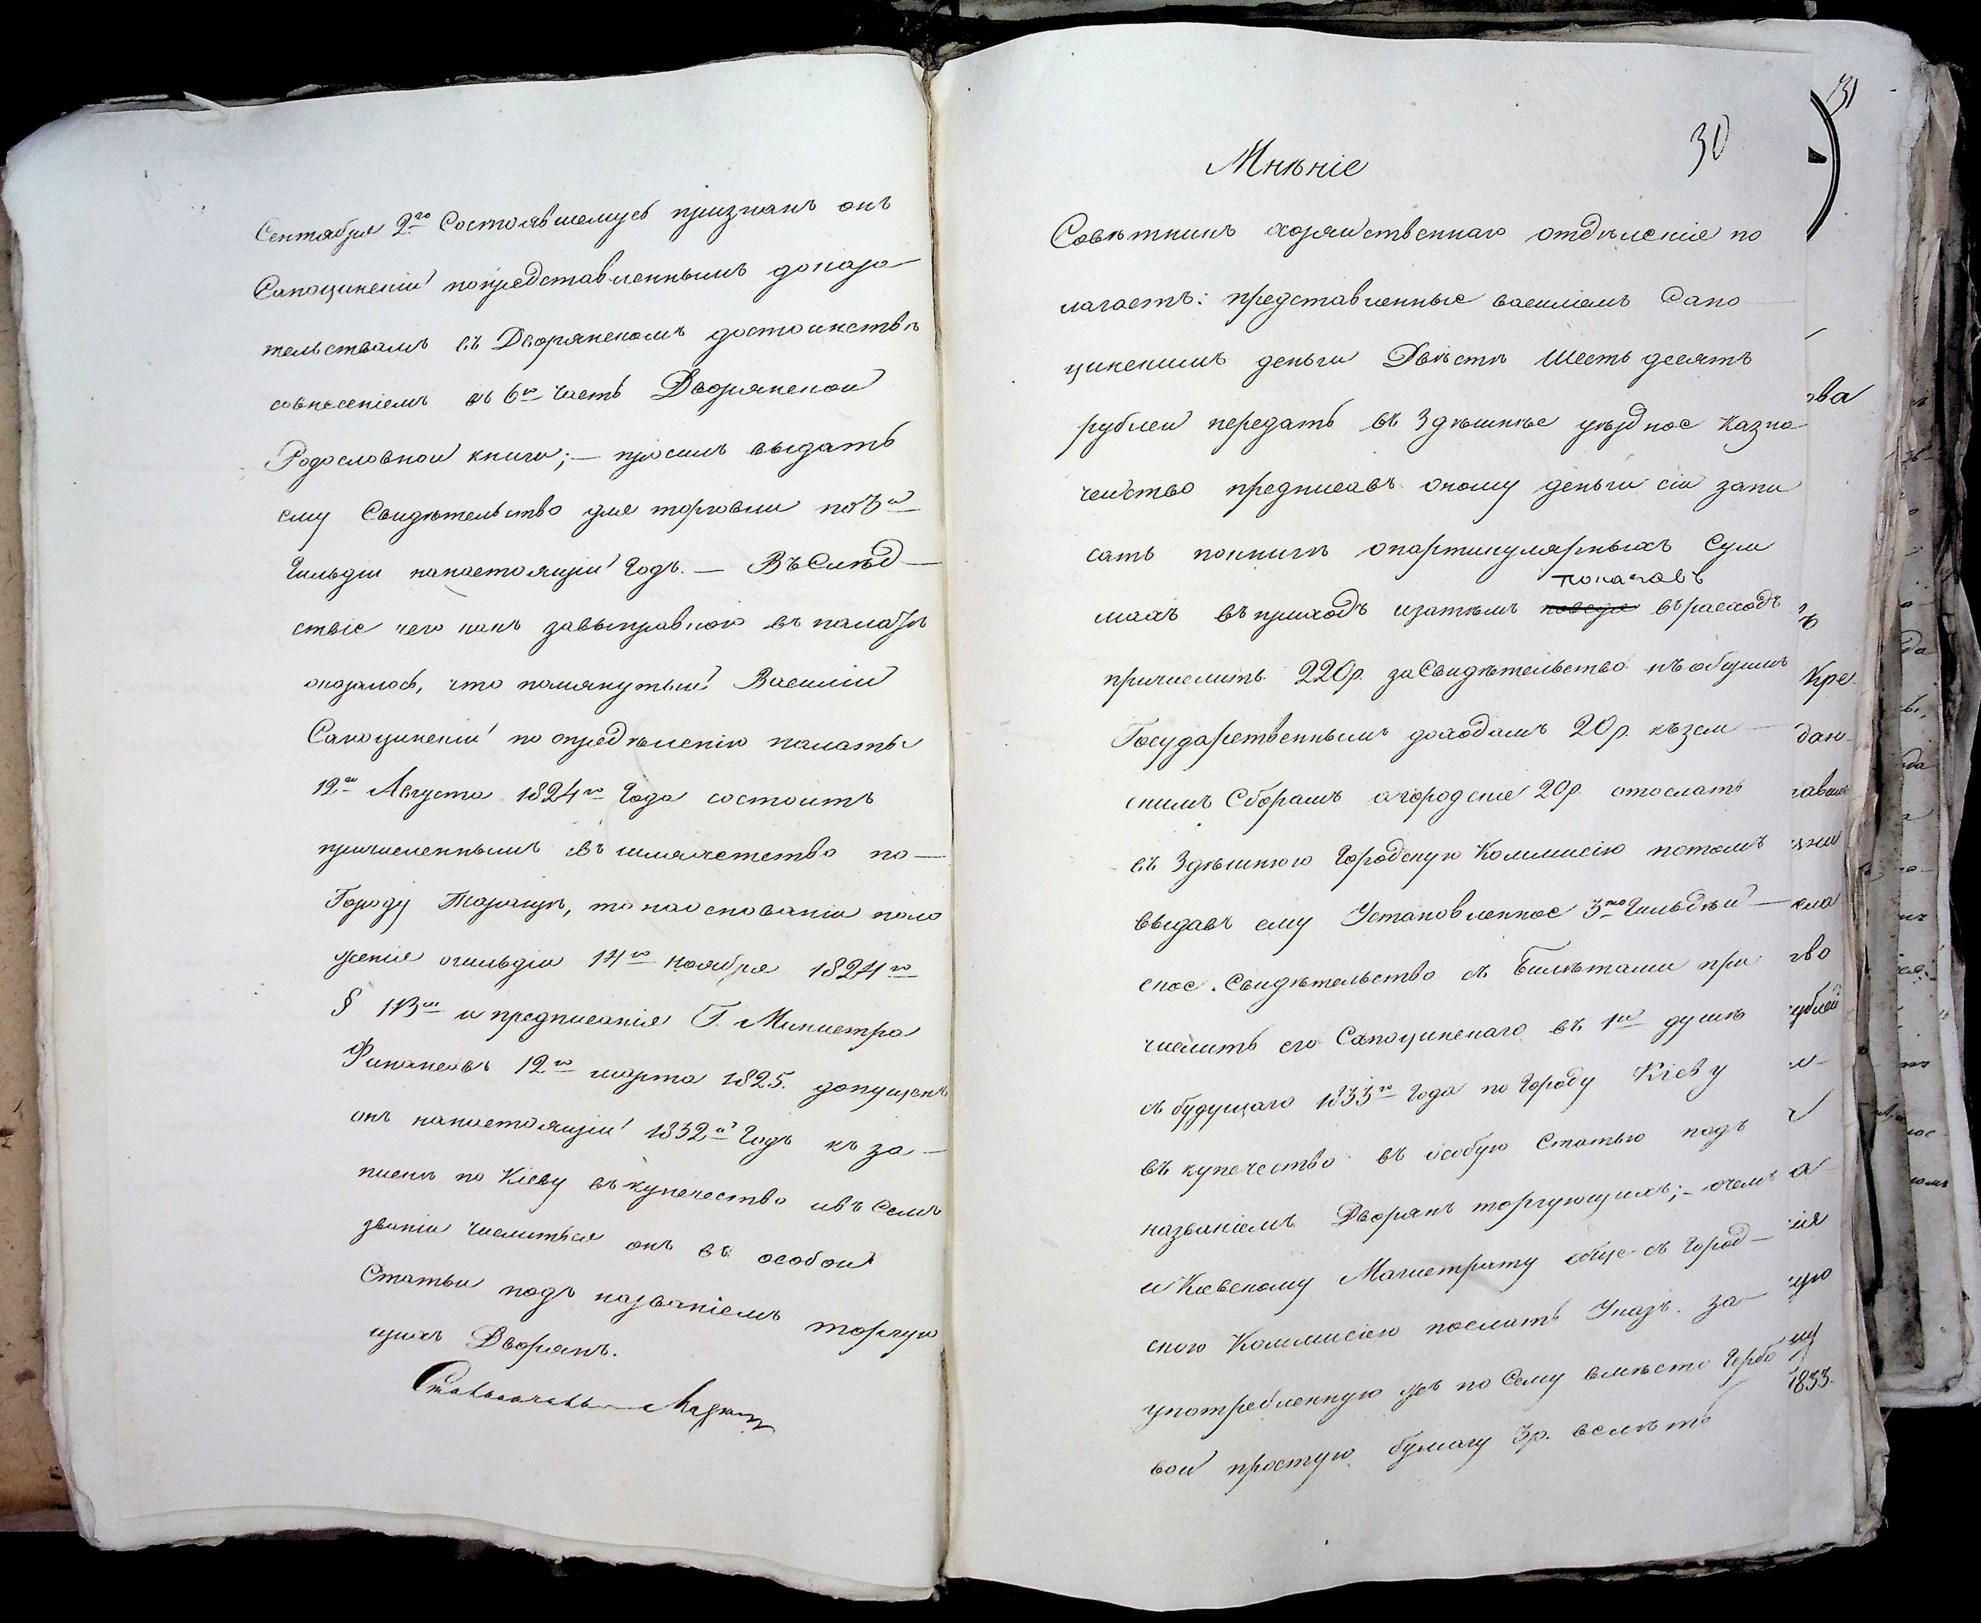 Сентября 2го Состоявшемуся признанъ онъ
Сапоцинскій попредставленнымъ доказа
тельствамъ въ Дворянскомъ достоинствѣ
совнесеніемъ въ 6ю часть Дворянской
Родословной книги; — просилъ выдать
ему Свидѣтельство для торговли по 3й
Гильдіи нанастоящій Годъ. — Въ Слѣд—
ствіе чего какъ завыправкою въ палатѣ
оказалось, что помянутый Василій
Сапоцинскій по опредѣленію палаты
12го Августа 1824го Года состоитъ
причисленнымъ въ шляхетство по—
Городу Таращѣ, то наоснованіи поло
женія огильдіи 14го ноября 1824го
§ 113го и предписанія Г. Министра
Финансовъ 12го марта 1825. допущенъ
онъ нанастоящій 1832й Годъ къ за—
пискѣ по Кіеву въ купечество ивъ Семъ
званіи числиться онъ въ особой
Статьи подъ названіемъ торгую
щихъ Дворянъ.
30
31
Мнѣніе
Совѣтникъ хозяйственнаго отдѣленія по
лагаетъ: представленные василіемъ Сапо
цинскимъ деньги Двѣсти Шесть десятъ
рублей передать въ Здѣшнѣе уѣздное Казна
чейство предписавъ оному деньги сіи запи
сать покниге опартикулярныхъ Сум
показавъ
махъ въ приходъ изатѣмъ въ расходъ
причислить 220р. за Свидѣтельство къ общимъ
Государственнымъ доходамъ 20р. къ зем—
скимъ Сборамъ агородскіе 20р. отослать
въ Здѣшнюю Городскую Коммисію потомъ
выдавъ ему Установленное 3й Гильдіи—
ское Свидѣтельство съ Билѣтами при
числить его Сапоцинскаго въ 1й душѣ
съ будущаго 1833го Года по Городу Кіеву
въ купечество въ особую Статью подъ
названіемъ Дворянъ торгующихъ; — очемъ
и Кіевскому Магистрату обще съ Город—
скою Коммисіею послать Указъ. за—
употребленную же по Сему вмѣсто Гербо
вой простую бумагу 3р. велѣть
1833.